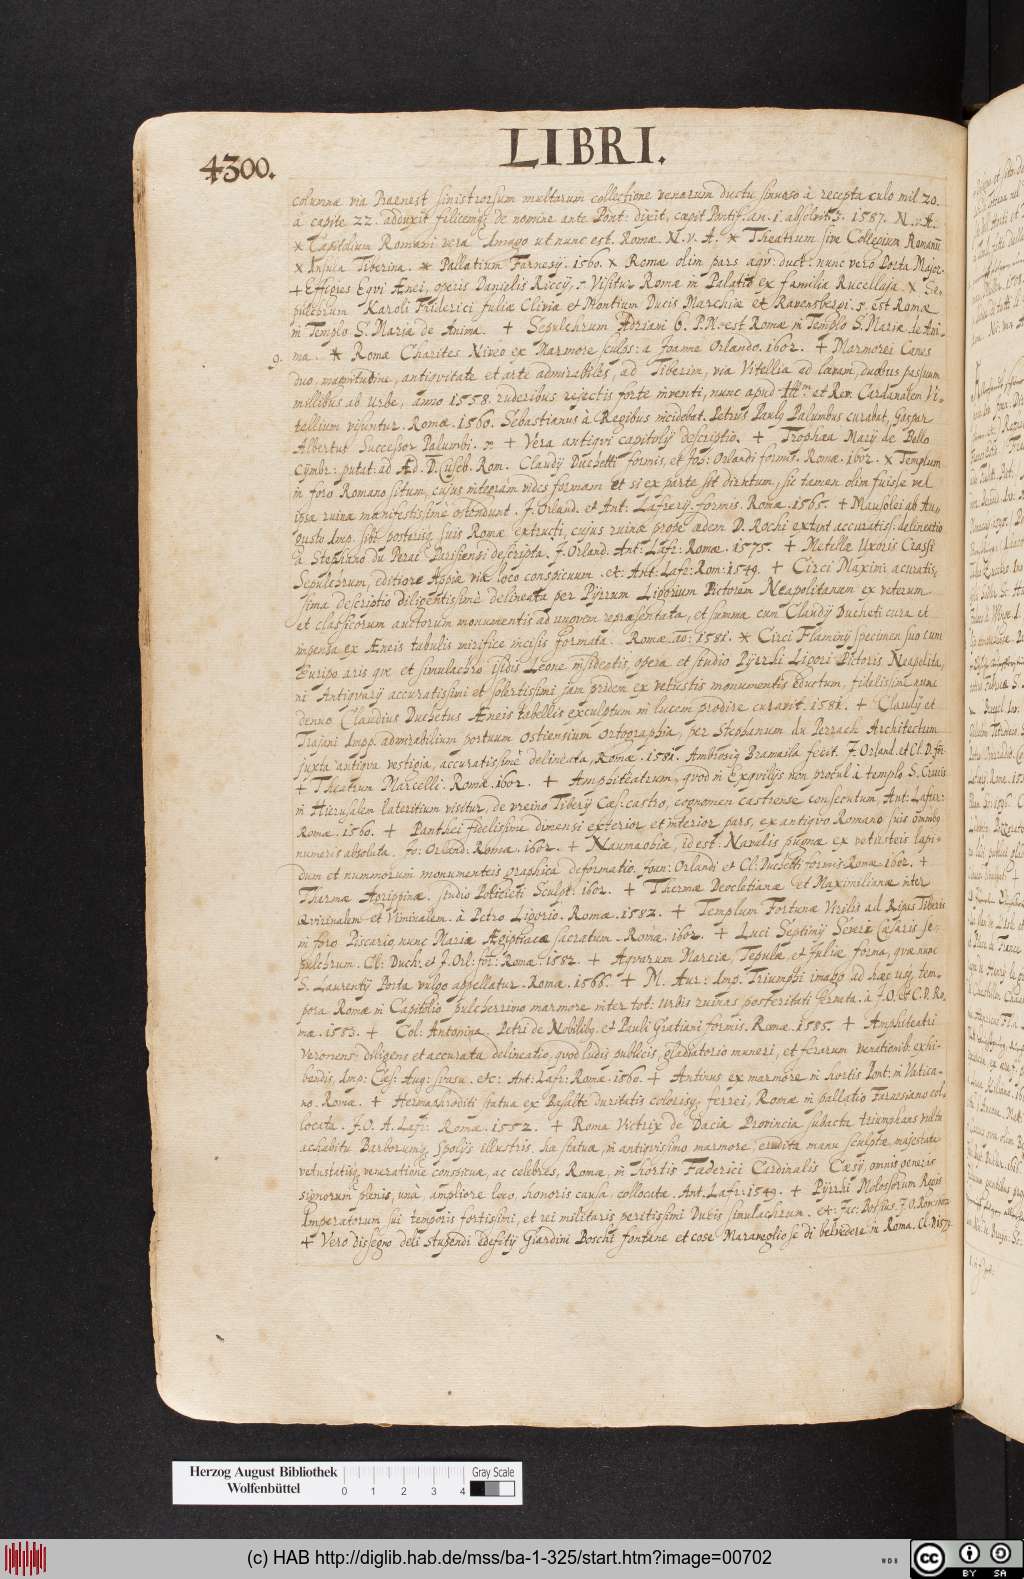 4300.
LIBRI.
columnæ via Prænest sinistrorsum multarum collectione venarum ductu sinuoso à receptaculo mil 20.
à capite 22. adduxit filicemq; de nomine ante Pont: dixit, cœpit Pontif. an. 1. absolvit 3. 1587. N. v. A.
× Capitolium Romani vera Imago ut nunc est. Romæ. N. v. A. × Theatrum sive Collegium Romanū
× Insula Tiberina. × Pallatium Farnesÿ. 1560. × Romæ olim pars aqv: duct: nunc vero Porta Major.
+ Effigies Eqvi Ænei, operis Danielis Riccÿ, Visitur Romæ in Palatio ex familia Rucellaja × Se-
pulchrum Karoli Friderici Juliæ Cliviæ et Montium Ducis Marchiæ et Ravensbergi. 5. est Romæ
in Templo S. Mariæ de Anima. + Sepulchrum Adriani 6. P. M. est Romæ in Templo S. Mariæ de Ani-
9. ma. × Romæ Charites Niveo ex Marmore sculps: a Joanne Orlando. 1602. + Marmorei Canes
duo, magnitudine, antiqvitate et arte admirabiles, ad Tiberim, via Vitellia ad lævam, duobus passuum
millibus ab Urbe, anno 1558. ruderibus rejectis forte inventi, nunc apud Illm. et Rev. Cardinalem Vi-
tellium visuntur. Romæ. 1560. Sebastianus à Regibus incidebat. Petrus Paulq Palumbus curabat, Gaspar
Albertus Successor Palumbi. + Vera antiqvi capitolÿ descriptio. + Trophæa Marÿ de Bello
Cymbr: putat: ad Æd. D. Euseb. Rom. Claudÿ Duchetti formis, et Jo: Orlandi formis. Romæ. 1602. × Templum
in foro Romano situm, cujus integram vides formam et si ex parte sit dirutum, sic tamen olim fuisse vel
ipsæ ruinæ manifestissimè ostendunt. J. Orland. et Ant: Lafrerÿ formis. Romæ. 1565. + Mausolei ab Au-
gusto Imp. sibi posterisq suis Romæ extructi, cujus ruinæ prope ædem D. Rochi extant accuratiss. delineatio
à Stephano du Perac Parisiensi descripta. J. Orland. Ant: Lafr: Romæ. 1575. + Metellæ Uxoris Crassi
Sepulchrum, editiore Appiæ viæ loco conspicuum. et: Ant: Lafr: Rom: 1549. + Circi Maximi acuratis-
sima descriptio diligentissimè delineata per Pÿrrum Ligorium Pictorem Neapolitanum ex veterum
et classicorum auctorum monumentis ad unquem repræsentata, et summa cum Claudÿ Ducheti cura et
impensa ex Æneis tabulis mirifice incisis formata. Romæ. ao: 1581. × Circi Flaminÿ specimen suo cum
Euripo aris qve et simulachro isidis Leone insidentis, opera et studio Pÿrrhi Ligori Pictoris Neapolita,
ni Antiqvarÿ accuratissimi et solertissimi jam pridem ex vetustis monumentis eductum, fidelissime nunc
denuo Claudius Duchetus Æneis tabellis exculptum in lucem prodire curavit. 1581. + Claudÿ et
Trajani Impp. admirabilium portuum Ostiensium Ortographia, per Stephanum du Perrach Architectum
juxta antiqva vestigia, accuratissimè delineata, Romæ. 1581. Ambrosiq Bramasla fecit. J. Orland. et Cl. D. for.
+ Theatrum Marcelli. Romæ. 1602. + Amphiteatrum, qvod in Exqvilÿs non procul à templo S. Crucis
in Hierusalem lateritium visitur, de vreino Tiberÿ Cæs: castro, cognomen castrense consecutum, Ant: Lafrer:
Romæ. 1560. + Panthei fidelissime dimensi exterior et interior pars, ex antiqvo Romano suis omnibq
numeris absoluta. Jo: Orland: Romæ. 1602. + Naumachiæ, id est. Navalis pugnæ ex vetusteis lapi-
dum et nummorum monumenteis graphicè deformatio. Joan: Orlandi et Cl: Duchetti formis. Romæ. 1602. +
Thermæ Agrippinæ. studio Policleti sculpt: 1602. + Thermæ Deocletianæ et Maximilianæ inter
Qvirinalem et Viminalem. à Petro Ligorio. Romæ. 1582. + Templum Fortunæ Virilis ad Ripas Tiberis
in foro Piscario, nunc Mariæ Ægiptiacæ sacratum. Romæ. 1602. + Luci Septimÿ Severi Cæsaris Se-
pulchrum. Cl: Duch: et J. Orl: for: Romæ. 1582. + Aqvarum Marciæ, Tepulæ, et Juliæ forma, qvæ nunc
S. Laurentÿ Porta vulgo appellatur. Romæ. 1566. + M. Aur: Imp. Triumphi imago ad hæc usq. tem-
pora Romæ in Capitolio pulcherrimo marmore inter tot: Urbis ruinas posteritati servata. à J. O. et C. D. Ro-
mæ. 1583. + Col: Antonina Petri de Nobilibq. et Pauli Gratiani formis. Romæ. 1585. + Amphiteatri
Veronens: diligens et accurata delineatio, qvod ludis publicis, gladiatorio muneri, et ferarum venationib: exhi-
bendis, Imp: Cæs: Aug: svasu. etc: Ant: Lafr: Romæ. 1560. + Antinus ex marmore in hortis Pont: in Vatica-
no. Romæ. + Hermaphroditi statua ex Basalte duritatis colorisq. ferrei, Romæ in pallatio Farnesiano col-
locata. J. O. A. Lafr: Romæ. 1552. + Roma Victrix de Dacia Provincia subacta triumphans vultu
achabitu Barborumq. spolÿs illustris. hæ statuæ in antiqvissimo marmore erudita manu sculptæ, majestate
vetustatisq. veneratione conspicuæ, ac celebres, Romæ, in hortis Faderici Cardinalis Cæsÿ, omnis generis
signorum plenis, unà, ampliore loco, honoris causa, collocatæ. Ant. Lafr: 1549. + Pÿrrhi Molossorum Regis
Imperatorum sui temporis fortissimi, et rei militaris peritissimi Ducis simulachrum. et: Jac: Bossius. J. O. Rom:
+ Vero dissegno deli stupendi edefitÿ Giardini Boschi fontane et cose Maraveglio se di belvedere in Roma. Cl. D. 157
Herzog August Bibliothek
Wolfenbüttel
0 1 2 3 4
Gray Scale
(c) HAB http://diglib.hab.de/mss/ba-1-325/start.htm?image=00702
WDB
cc BY SA